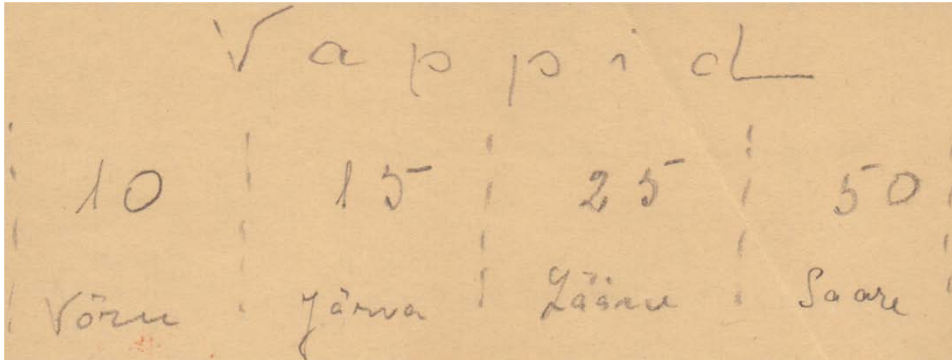 Vappid
10 15 25 50
Võru Järva Lääne Saare